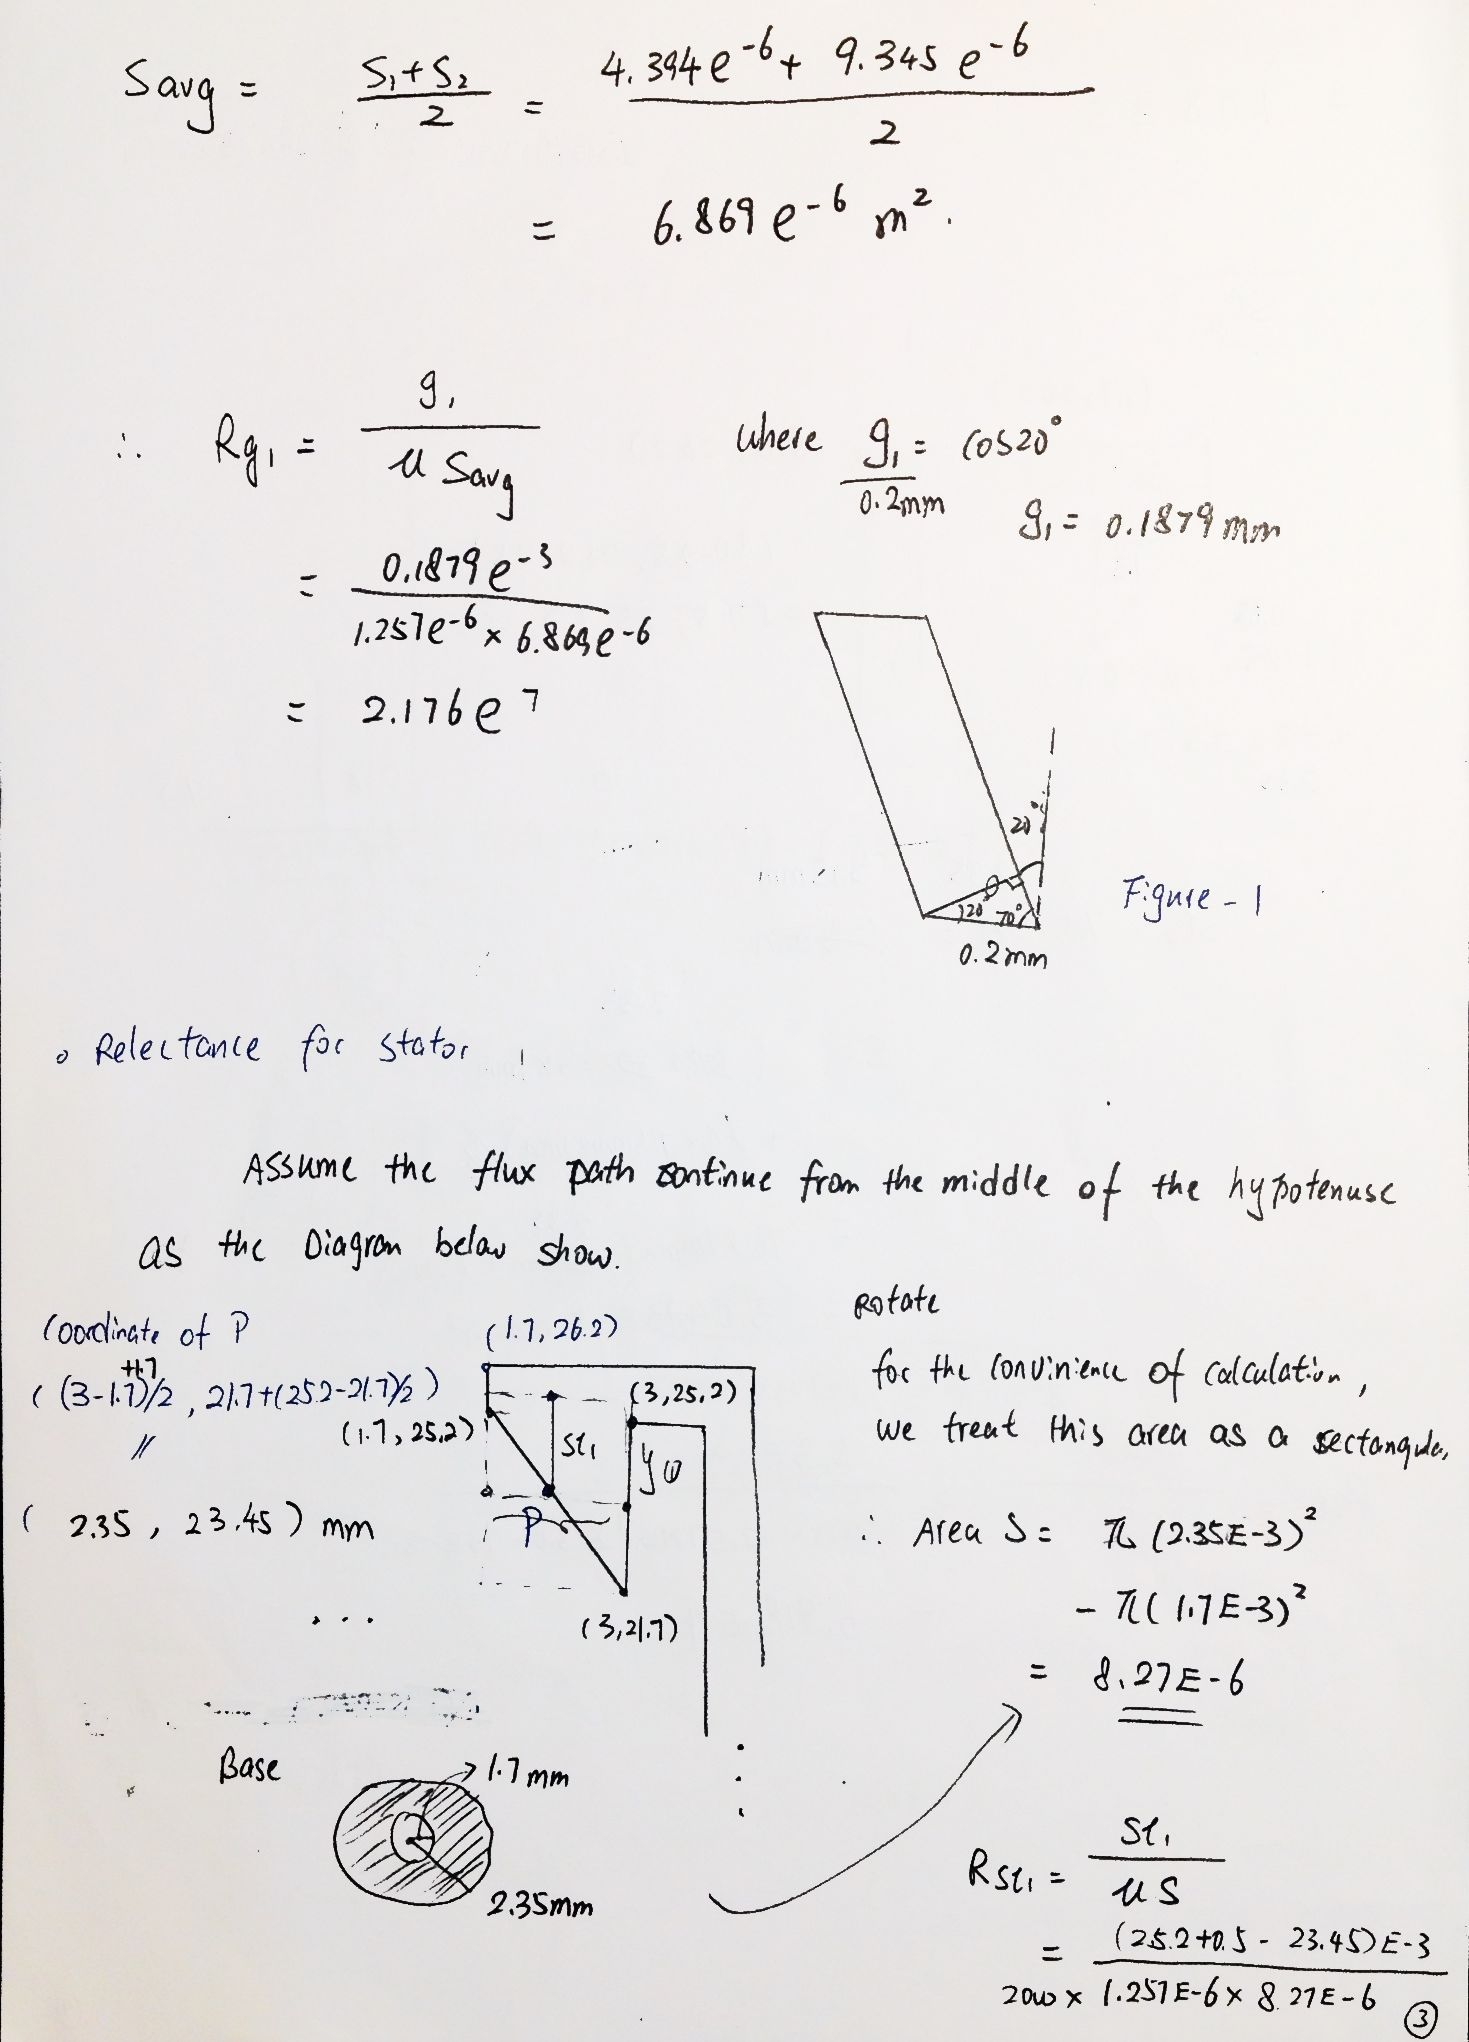 Savg = S1+S2 / 2 = 4.394e-6 + 9.345e-6 / 2
= 6.869e-6 m².
∴ Rg1 = g1 / u Savg
where g1 / 0.2mm = cos20°
g1 = 0.1879mm
= 0.1879e-3 / 1.257e-6 x 6.869e-6
= 2.176e7
20°
θ
20° 70°
0.2mm
Figure-1
o Relectance for stator
Assume the flux path continue from the middle of the hypotenuse
as the Diagram below show.
Coordinate of P
((3-1.7)/2+1.7, 21.7+(25.2-21.7)/2)
//
(2.35, 23.45) mm
...
(1.7, 26.2)
(3,25.2)
(1.7, 25.2)
sl1
yw
P
(3,21.7)
Rotate
for the convinience of calculation,
we treat this area as a rectangular,
∴ Area S = π (2.35E-3)²
- π(1.7E-3)²
= 8.27E-6
Base
1.7mm
2.35mm
Rsl1 = sl1 / u S
= (25.2+0.5 - 23.45)E-3 / 2000 x 1.257E-6 x 8.27E-6
③